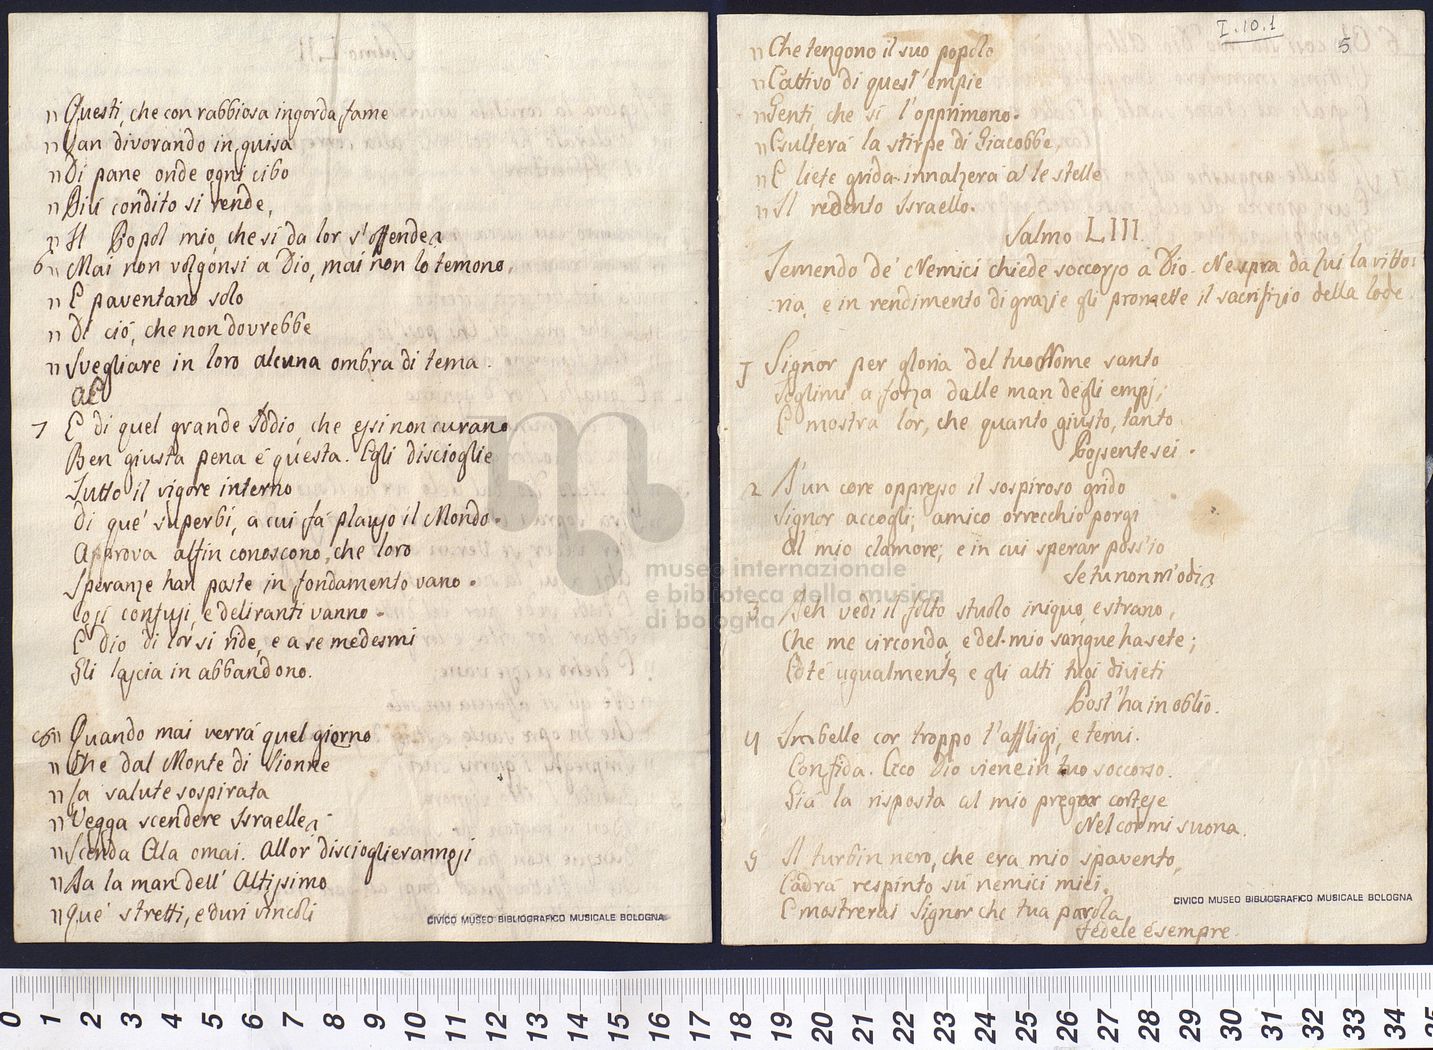 " Questi, che con rabbiosa ingorda fame
" Van divorando in guisa
" Di pane onde ogni cibo
" Più condito si rende,
" Il Popol mio, che si da lor s'offende
6 " Mai non volgonsi a Dio, mai non lo temono,
" E paventano solo
" Di ciò, che non dovrebbe
" Svegliare in loro alcuna ombra di tema.
7 E di quel grande Iddio, che essi non curano
Ben giusta pena é questa. Egli discioglie
Tutto il vigore interno
Di que' superbi, a cui fà plauso il Mondo.
A prova alfin conoscono, che loro
Speranze han poste in fondamento vano.
Così confusi, e deliranti vanno.
E Dio di lor si ride, e a se medesmi
Gli lascia in abbandono.
8 " Quando mai verrà quel giorno
" Che dal Monte di Sionne
" La salute sospirata
" Vegga scendere Israelle
" Scenda Ella omai. Allor discioglierannosi
" Da la man dell' Altissimo
" Que' stretti, e duri vincoli
CIVICO MUSEO BIBLIOGRAFICO MUSICALE BOLOGNA
I.10.1
5
" Che tengono il suo popolo
" Cattivo di quest' empie
" Genti che sì l'opprimono.
" Esulterà la stirpe di Giacobbe,
" E liete grida innalzerà a le stelle
" Il redento Israello.
Salmo LIII.
Temendo de' Nemici chiede soccorso a Dio. Ne spra da Lui la vitto:
:ria, e in rendimento di grazie gli promette il sacrifizio della lode.
1 Signor per gloria del tuo Nome santo
Toglimi a forza dalle man degli empj;
E mostra lor, che quanto giusto, tanto
Possente sei.
2 D'un core oppresso il sospiroso grido
Signor accogli; amico orrecchio porgi
Al mio clamore; e in cui sperar poss'io
Se tu non m'odi
3 Deh vedi il folto stuolo iniquo, e strano,
Che me circonda, e del mio sangue ha sete;
E dté ugualmente, e gli alti tuoi divieti
Post' ha in oblio.
4 Imbelle cor troppo t'affligi, e temi.
Confida. Ecco Dio viene in tuo soccorso.
Già la risposta al mio pregar cortese
Nel cor mi suona.
5 Il turbin nero, che era mio spavento,
Cadrà respinto sù nemici miei.
E mostrerai Signor che tua parola,
Fedele é sempre.
CIVICO MUSEO BIBLIOGRAFICO MUSICALE BOLOGNA
museo internazionale
e biblioteca della musica
di bologna
0 1 2 3 4 5 6 7 8 9 10 11 12 13 14 15 16 17 18 19 20 21 22 23 24 25 26 27 28 29 30 31 32 33 34 35